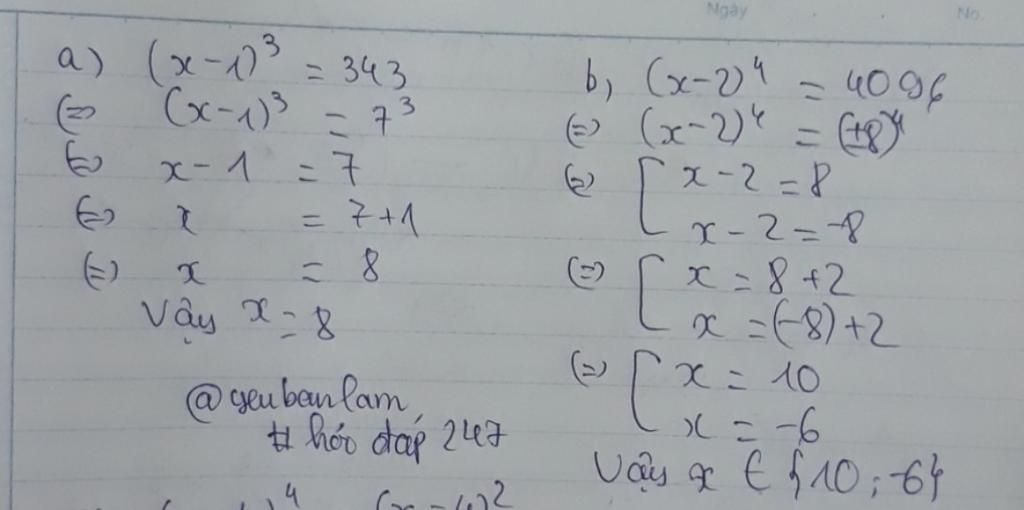 Ngày
No.
a) (x-1)³ = 343
(=) (x-1)³ = 7³
(=) x-1 = 7
(=) x = 7+1
(=) x = 8
Vậy x = 8
@yeubanlam
# hỏi đáp 247
b, (x-2)⁴ = 4096
(=) (x-2)⁴ = (±8)⁴
(=) [ x-2 = 8
x-2 = -8
(=) [ x = 8+2
x = (-8)+2
(=) [ x = 10
x = -6
Vậy x ∈ {10; -6}